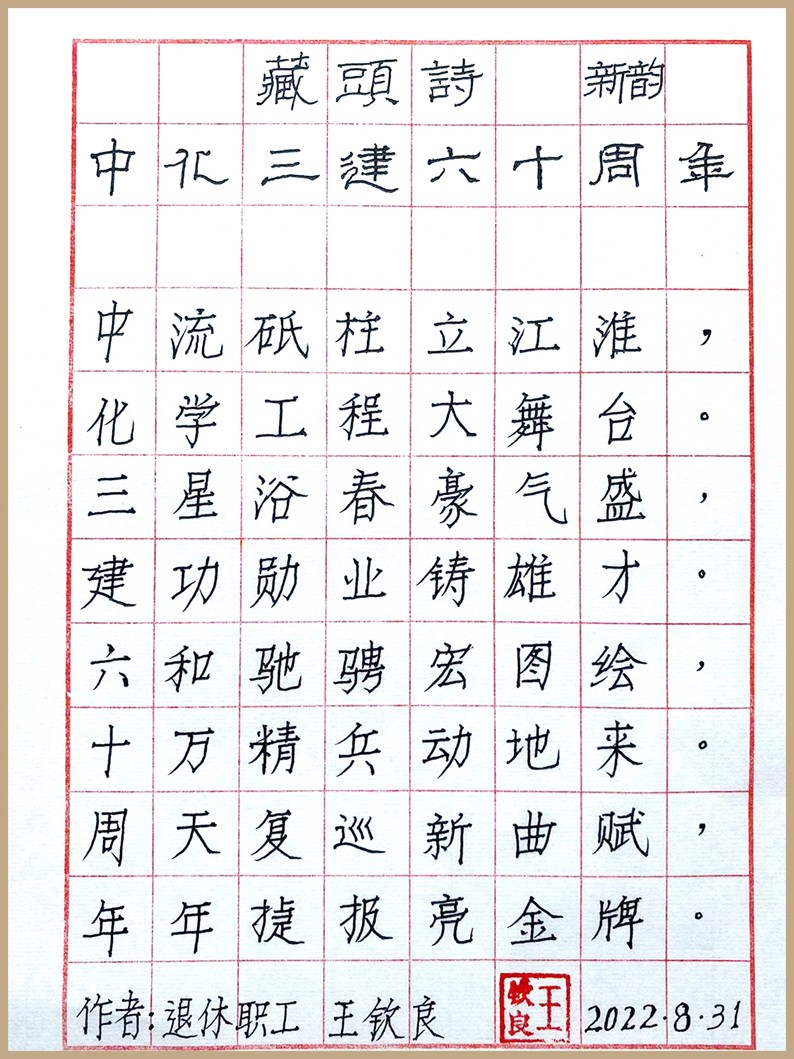 藏頭詩 新韵
中化三建六十周年
中流砥柱立江淮，
化学工程大舞台。
三星浴春豪气盛，
建功勋业铸雄才。
六和驰骋宏图绘，
十万精兵动地来。
周天复巡新曲赋，
年年捷报亮金牌。
作者：退休职工 王钦良 王钦良 2022·8·31